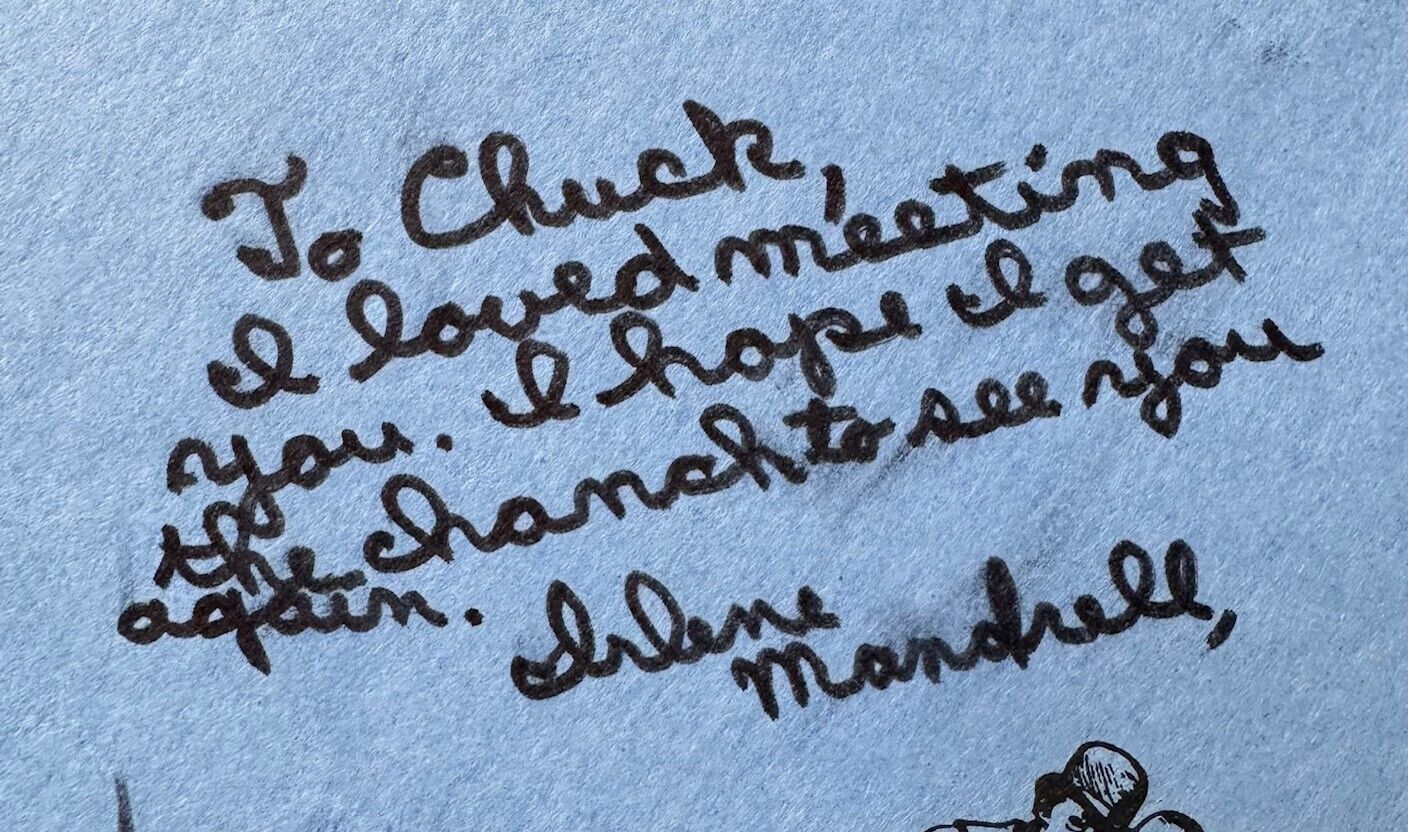 To Chuck,
I loved meeting
you. I hope I get
the chanch to see you
again.
Irlene
Mandrell,